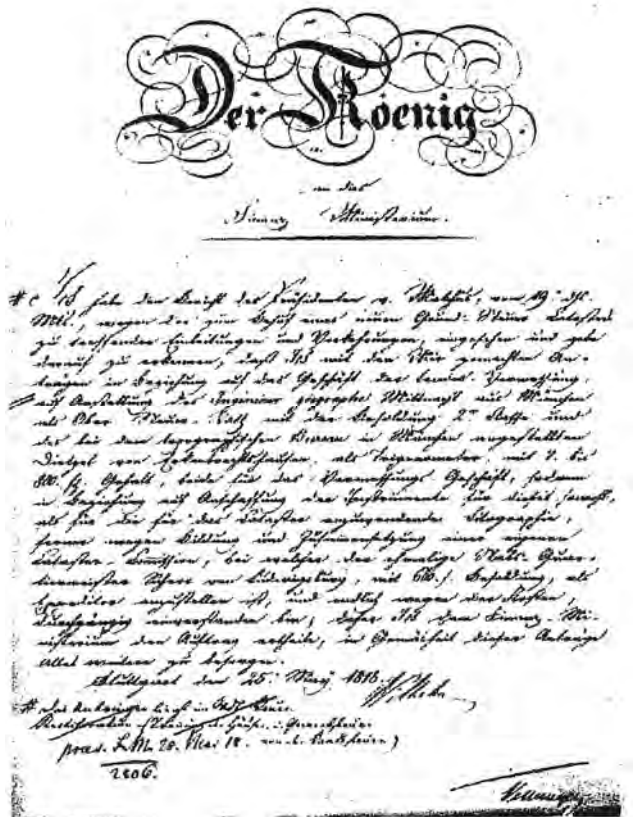 Der Koenig
an das
Finanz Ministerium.
Ich habe den Bericht des Präsidenten v. Malchus, vom 19. dß.
Mts., wegen der zum Behuf eines neuen Grund-Steuer Catasters
zu treffenden Einleitungen und Vorkehrungen, eingesehen und gebe
darauf zu erkennen, daß Ich mit den Mir gemachten An-
trägen in Beziehung auf das Geschäft der Landes-Vermessung,
auf Anstellung des Ingenieur geographe Mittnacht aus München
als Ober Steuer-Rath mit der Besoldung 2r Classe und
des bei dem topographischen Bureau in München angestellten
Dietzel von als Trigonometer, mit 7. bis
800. fl. Gehalt, beide für das Vermessungs Geschäft, sodann
in Beziehung auf Anschaffung der Instrumente für dieses sowohl,
als für die für das Cataster anzuwendende Lithographie,
ferner wegen Bildung und Zusammensetzung einer eigenen
Cataster-Commission, bei welcher der ehemalige Staabs-Quar-
tiermeister von Ludwigsburg, mit 600. f. Besoldung, als
Expeditor anzustellen ist, und endlich wegen der Kosten,
durchgängig einverstanden bin; daher Ich dem Finanz-Mi-
nisterium den Auftrag ertheile, in Gemäsheit dieser Anträge
alles weitere zu besorgen.
Stuttgart den 25. May 1818.
Wilhelm
praes. F.M. 28. Mai 18.
2806.